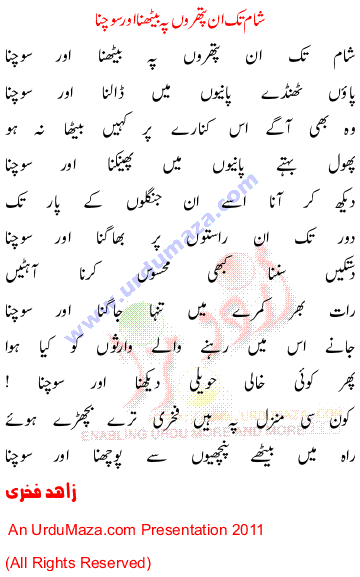 شام تک ان پتھروں پہ بیٹھنا اور سوچنا
شام تک ان پتھروں پہ بیٹھنا اور سوچنا
پاؤں ٹھنڈے پانیوں میں ڈالنا اور سوچنا
وہ بھی آگے اس کنارے پر کہیں بیٹھا نہ ہو
پھول بہتے پانیوں میں پھینکنا اور سوچنا
دیکھ کر آنا اسے ان جنگلوں کے پار تک
دور تک ان راستوں پر بھاگنا اور سوچنا
دستکیں سننا کبھی محسوس کرنا آہٹیں
رات بھر کمرے میں تنہا جاگنا اور سوچنا
جانے اس میں رہنے والے وارثوں کو کیا ہوا
پھر کوئی خالی حویلی دیکھنا اور سوچنا !
کون سی منزل پہ ہیں فخری ترے بچھڑے ہوئے
راہ میں بیٹھے پنچھیوں سے پوچھنا اور سوچنا
زاہد فخری
An UrduMaza.com Presentation 2011
(All Rights Reserved)
www.urdumaza.com
ENABLING URDU MORE AND MORE